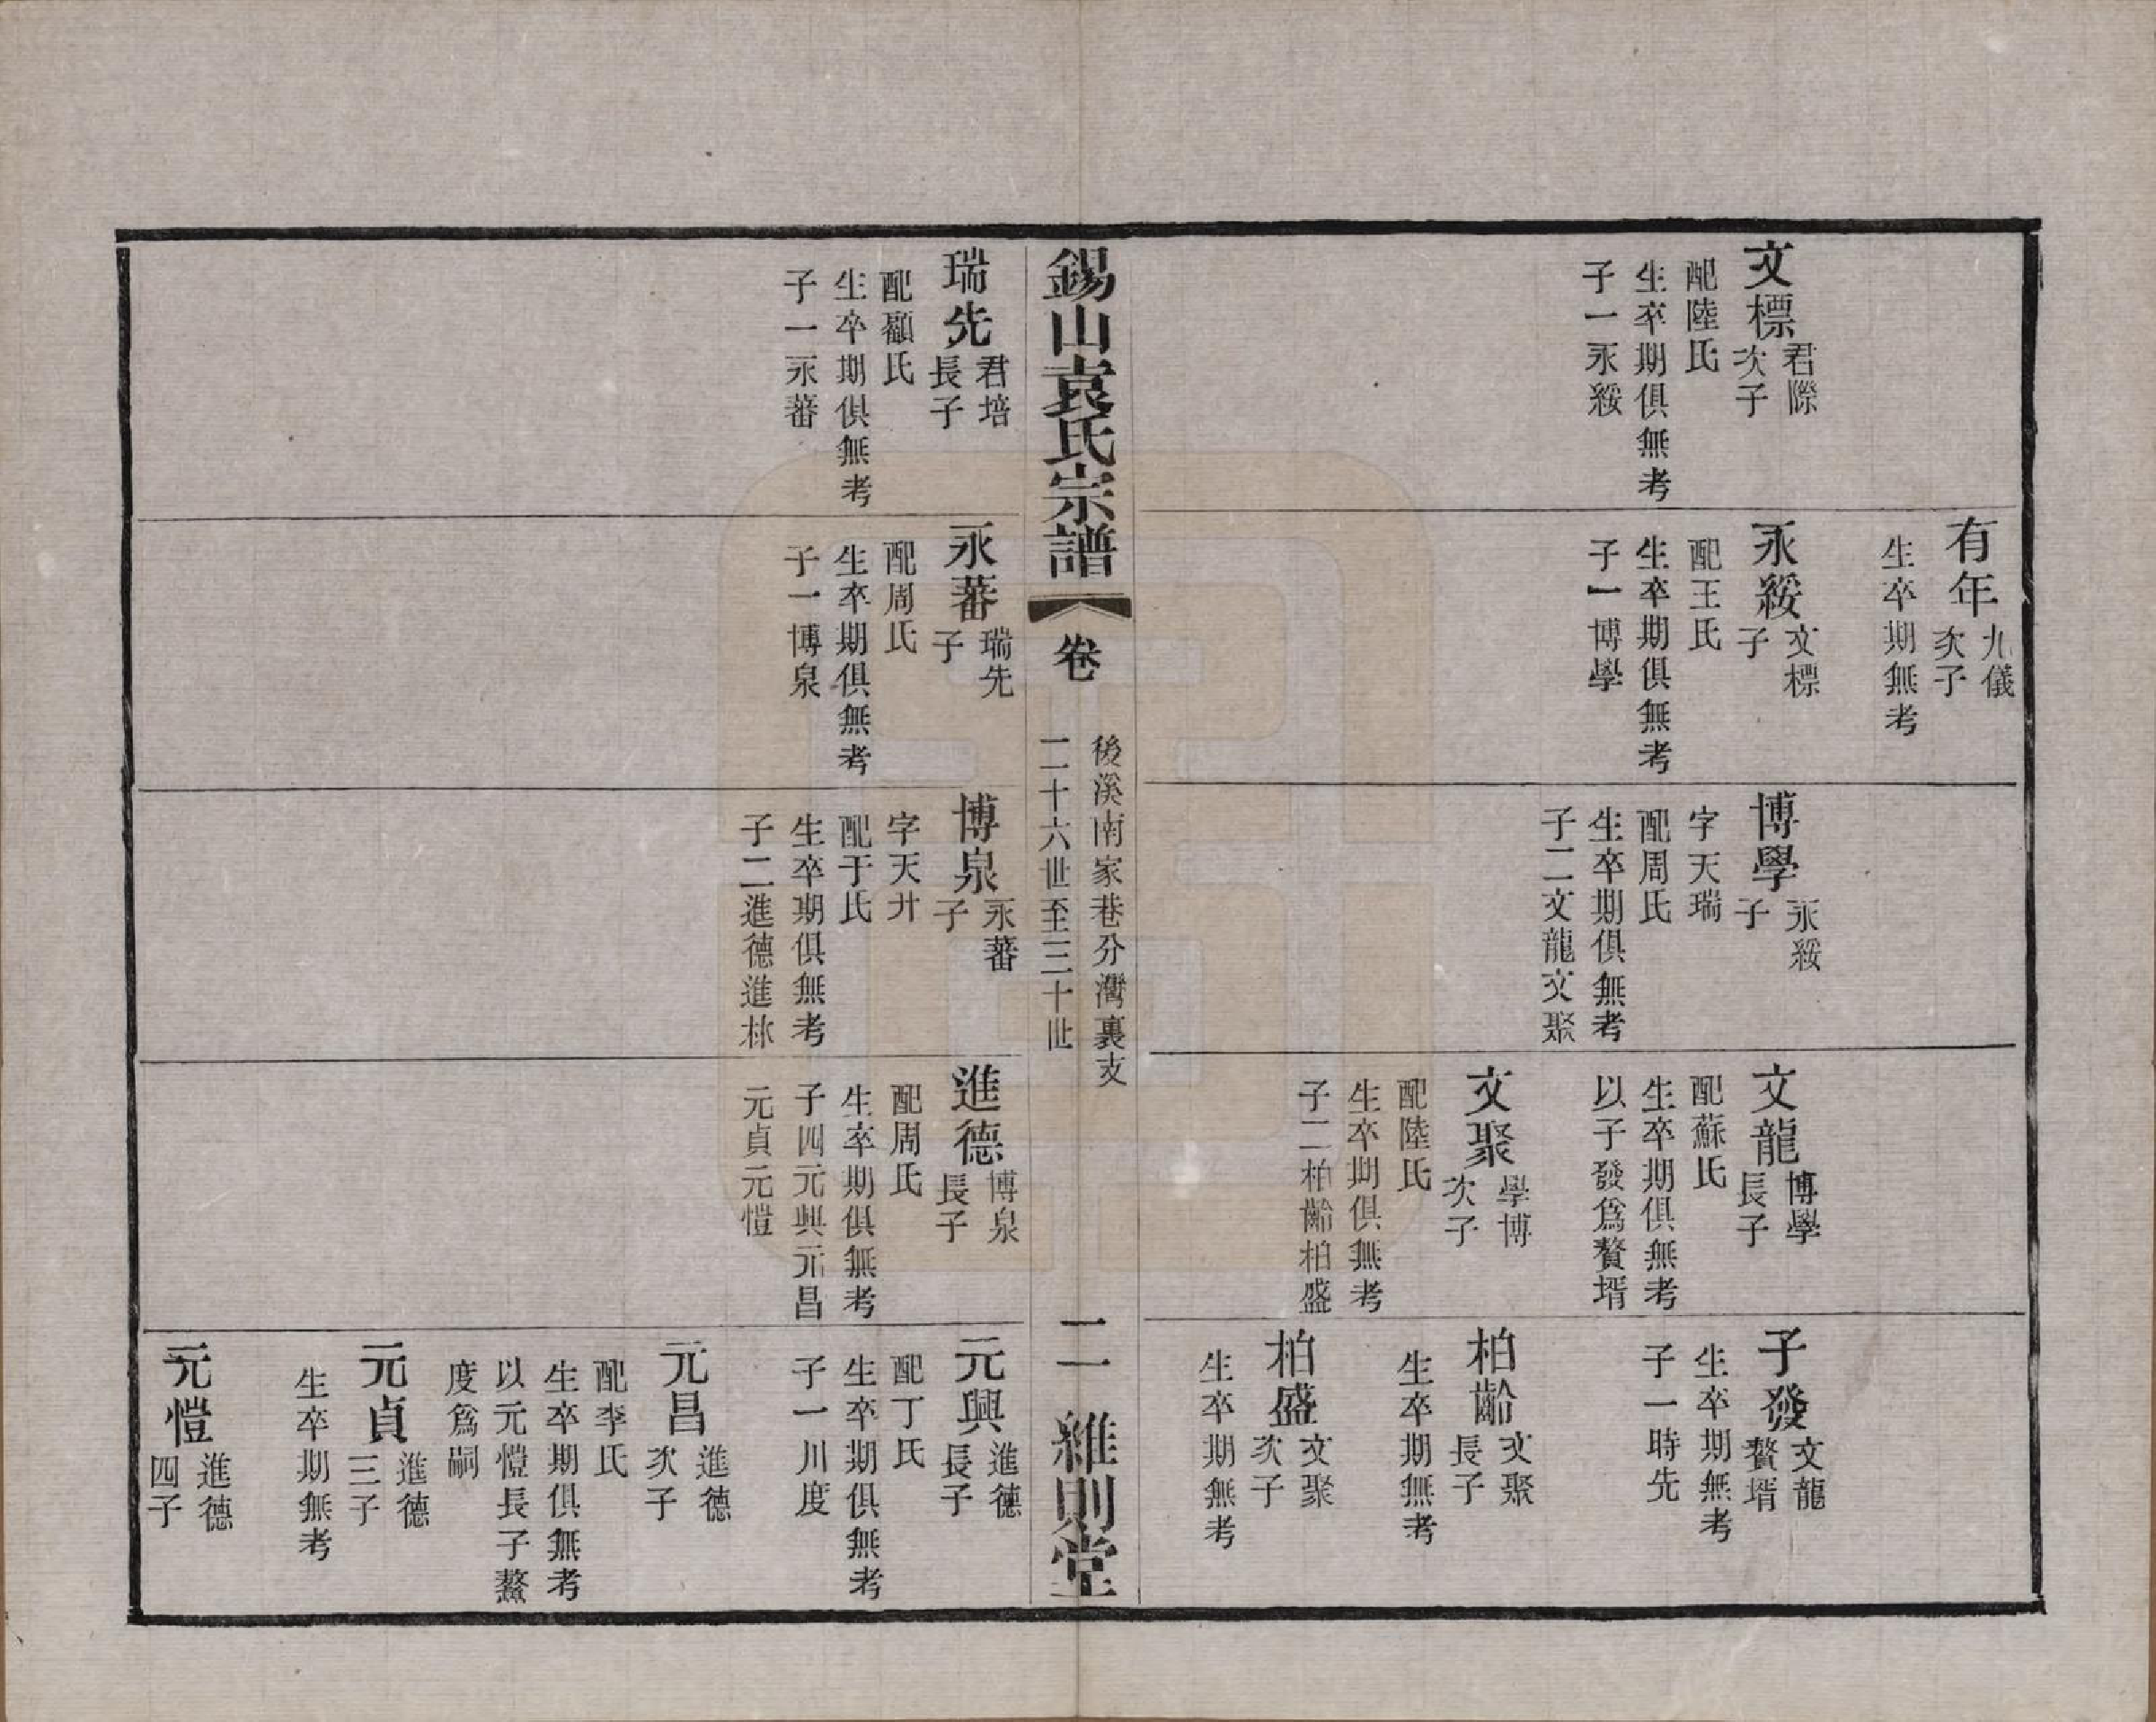 文標 君際次子
配陸氏
生卒期俱無考
子一永綏
有年 九儀次子
生卒期無考
永綏 文標子
配王氏
生卒期俱無考
子一博學
博學 永綏子
字天瑞
配周氏
生卒期俱無考
子二文龍文聚
文龍 博學長子
配蘇氏
生卒期俱無考
以子發爲贅壻
文聚 學博次子
配陸氏
生卒期俱無考
子二柏齡柏盛
子發 文龍贅壻
生卒期無考
子一時先
柏齡 文聚長子
生卒期無考
柏盛 文聚次子
生卒期無考
錫山袁氏宗譜
卷
後溪南家巷分灣裏支
二十六世至三十世
二
維則堂
瑞先 君培長子
配顧氏
生卒期俱無考
子一永蕃
永蕃 瑞先子
配周氏
生卒期俱無考
子一博泉
博泉 永蕃子
字天廾
配于氏
生卒期俱無考
子二進德進林
進德 博泉長子
配周氏
生卒期俱無考
子四元興元昌
元貞元愷
元興 進德長子
配丁氏
生卒期俱無考
子一川度
元昌 進德次子
配李氏
生卒期俱無考
以元愷長子鰲
度爲嗣
元貞 進德三子
生卒期無考
元愷 進德四子